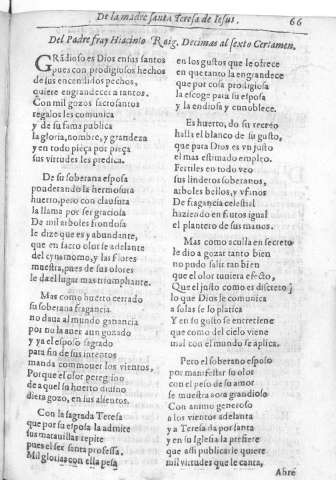 De la madre santa Teresa de Iesus. 66
Del Padre fray Hiacinto Roig. Decimas al sexto Certamen.
GRãdioso es Dios en sus santos
pues con prodigiosos hechos
de sus encendidos pechos,
quiere engrandecer a tantos.
Con mil gozos sacrosantos
regalos les comunica
y de su fama publica
la gloria, nombre, y grandeza
y en todo pieça por pieça
sus virtudes les predica.
De su soberana esposa
ponderando la hermosura
huerto, pero con clausura
la llama por ser graciosa
De mil arboles frondosa
le dize que es y abundante,
que en sacro olor se adelante
del cynamomo, y las flores
muestra, pues de sus olores
le da el lugar mas triumphante.
Mas como huerto cerrado
su soberana fragancia
no daua al mundo ganancia
por no la auer aun gozado
y ya el esposo sagrado
para fin de sus intentos
manda commouer los vientos,
Porque el olor peregrino
de aquel su huerto diuino
diera gozo, en sus alientos.
Con la sagrada Teresa
que por su esposa la admite
sus marauillas repite
pues el ser santa professa.
Mil glorias con ella pesa
en los gustos que le ofrece
en que tanto la engrandece
que por cosa prodigiosa
la escoge para su esposa
y la endiosa y ennoblece.
Es huerto, do su recreo
halla el blanco de su gusto,
que para Dios es vn justo
el mas estimado empleo.
Fertiles en todo veo
sus linderos soberanos,
arboles bellos, y vfanos
De fragancia celestial
haziendo en frutos igual
el plantero de sus manos.
Mas como aculla en secreto
le dio a gozar tanto bien
no pudo salir tan bien
que el olor tuuiera efecto,
Que el justo como es discreto
lo que Dios le comunica
a solas se lo platica
Y en su gusto se entretiene
que como del cielo viene
mal con el mundo se aplica.
Pero el soberano esposo
por manifestar su olor
con el peso de su amor
se muestra aora grandioso
Con animo generoso
a los vientos adelanta
y a Teresa da por santa
y en su Iglesia la prefiere
que assi publicarle quiere
mil virtudes que le canta,
Abre